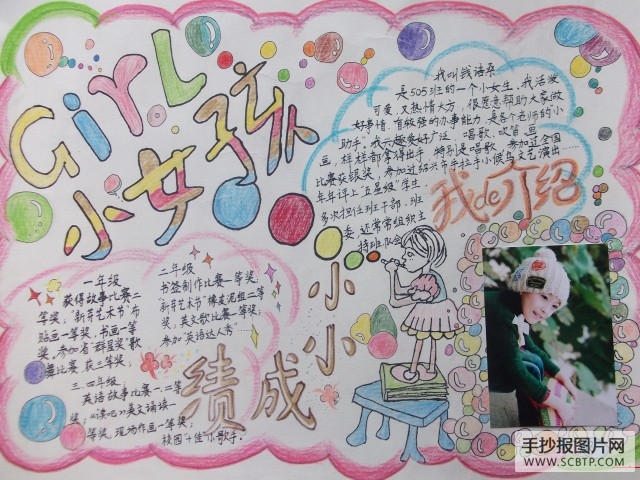 GirL
小女孩
我叫钱语桑
是505班的一个小女生,我活泼
可爱,又热情大方,很愿意帮助大家做
好事情,有较强的办事能力,是各个老师的小
助手。我兴趣爱好广泛,唱歌、吹笛、画
画,样样都拿得出手,特别是唱歌,参加过全国
比赛获银奖,参加过绍兴市手拉手小候鸟文艺演出……
年年评上"五星级"学生
多次担任班干部,班
委,还常常组织主
持班队会
我de介绍
一年级
获得故事比赛二
等奖,"新芽艺术节"布
贴画一等奖,书画一等
奖,参加省"群星奖"歌
舞比赛,获三等奖;
二年级
书签制作比赛一等奖,
"新芽艺术节"橡皮泥组二等
奖,英文歌比赛一等奖,
参加"英语达人秀"……
三、四年级
英语故事比赛一、二等
奖,"读吧"美文诵读一
等奖,现场作画一等奖;
校园"十佳"小歌手。
小小
成绩
手抄报图片网
WWW.SCBTP.COM